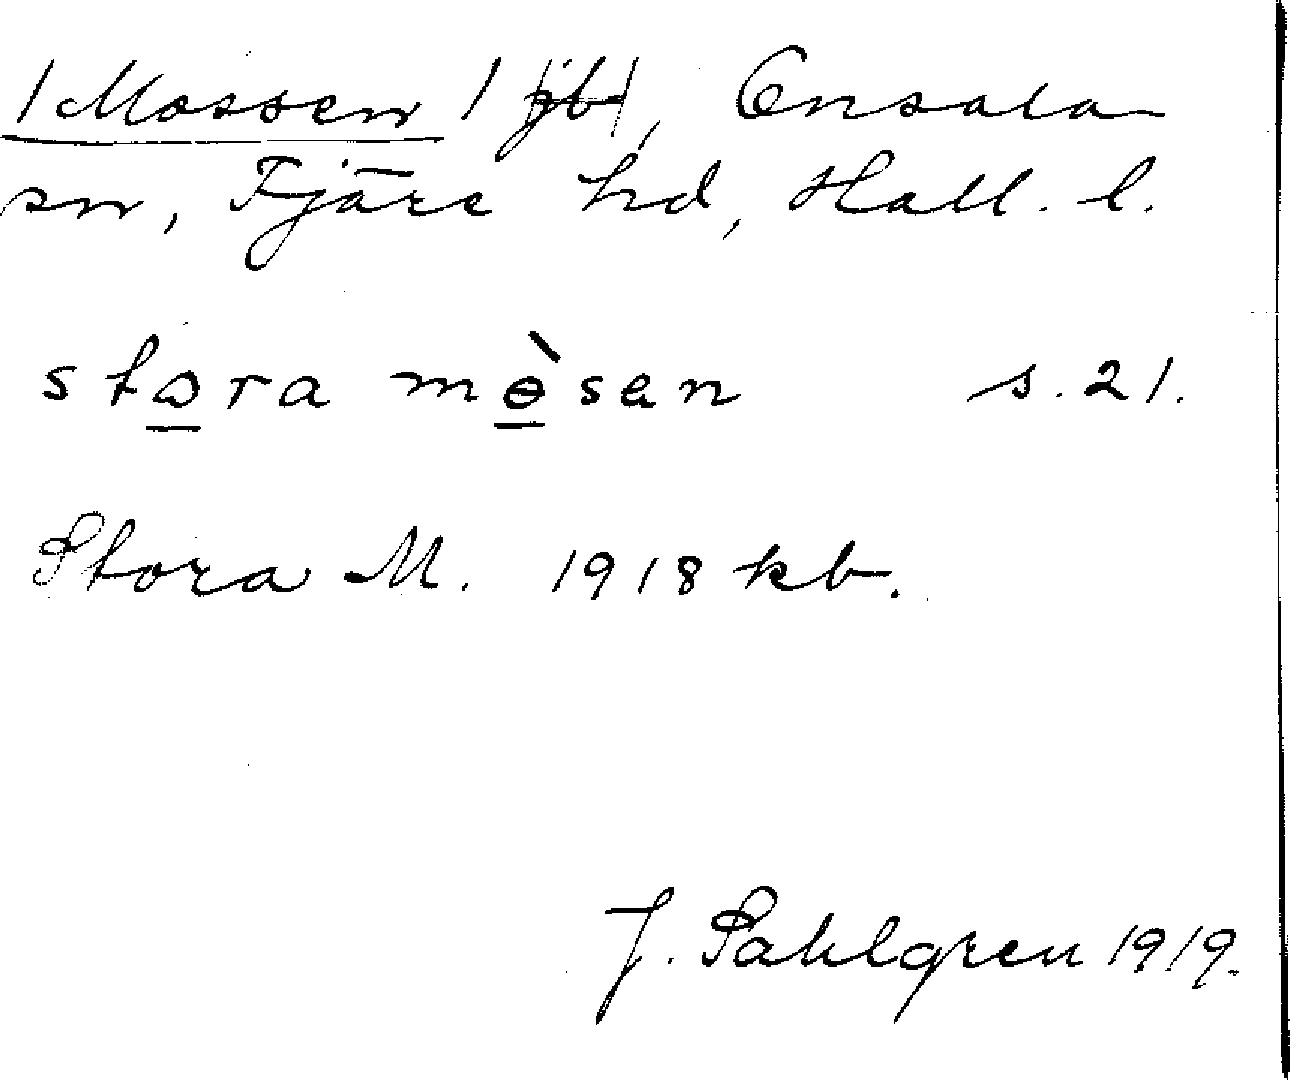 / Mossen / jb, Onsala
sn, Fjäre hd, Hall. l.
stɷra mɵ̀sen s. 21.
Stora M. 1918 kb.
J. Sahlgren 1919.